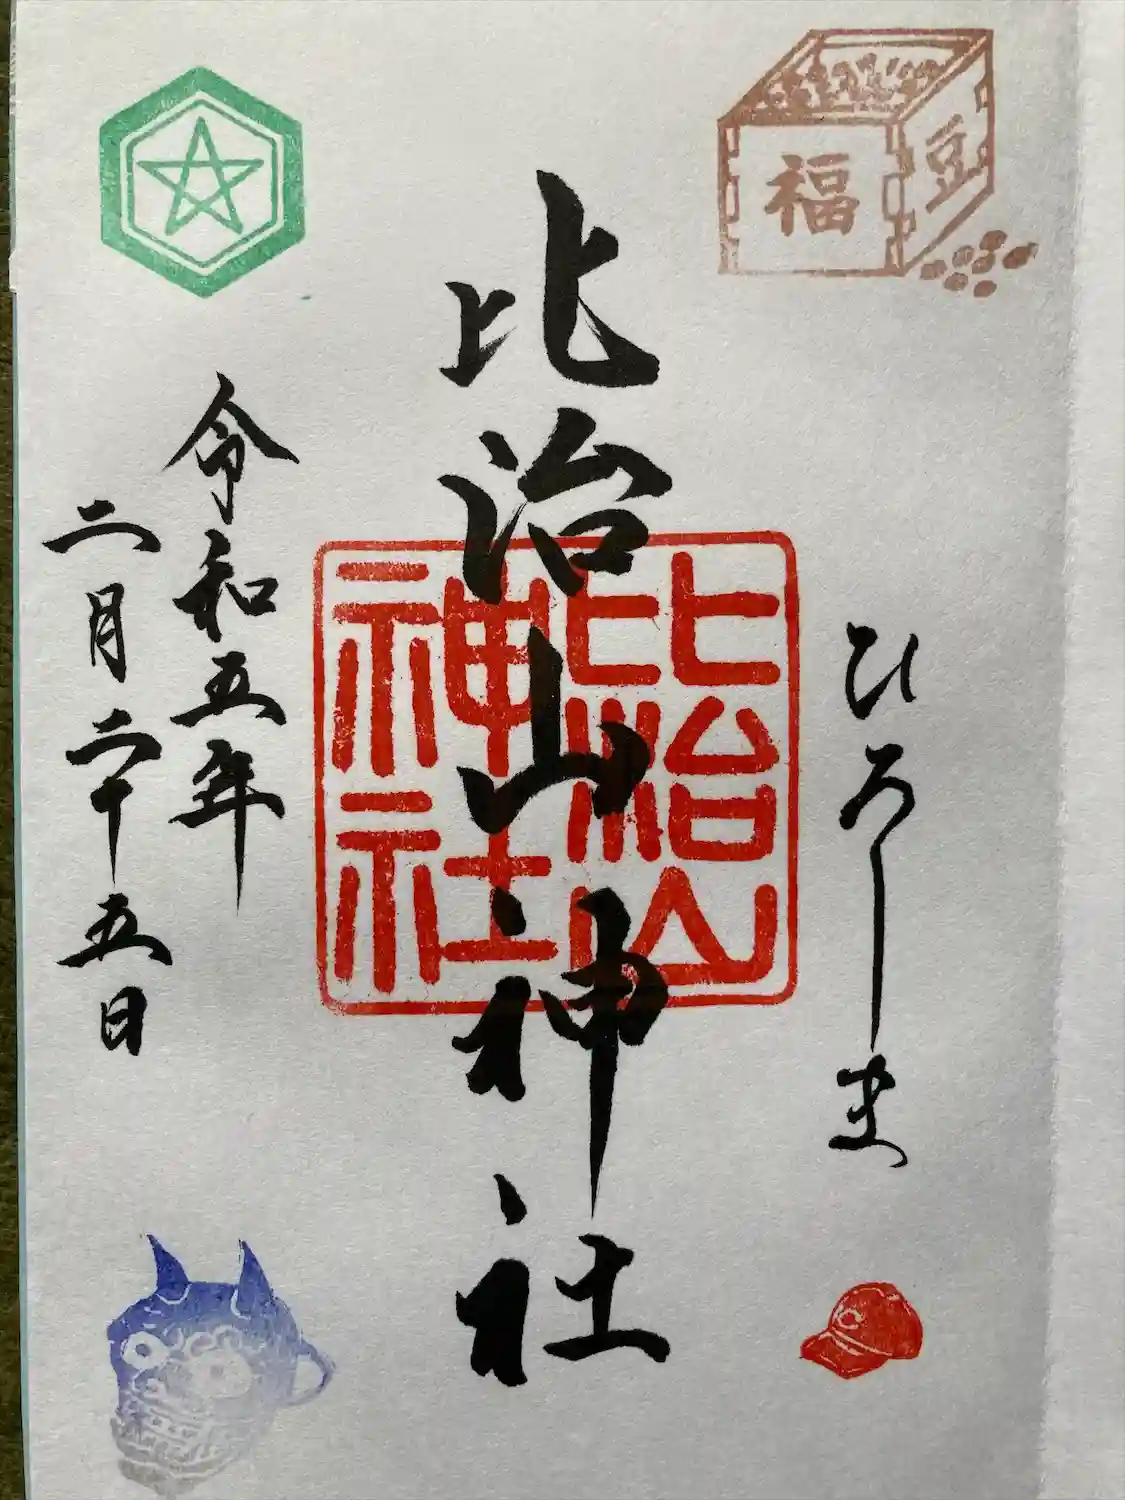 福
豆
ひろしま
比治山神社
比治山
神社
令和五年
二月二十五日
C